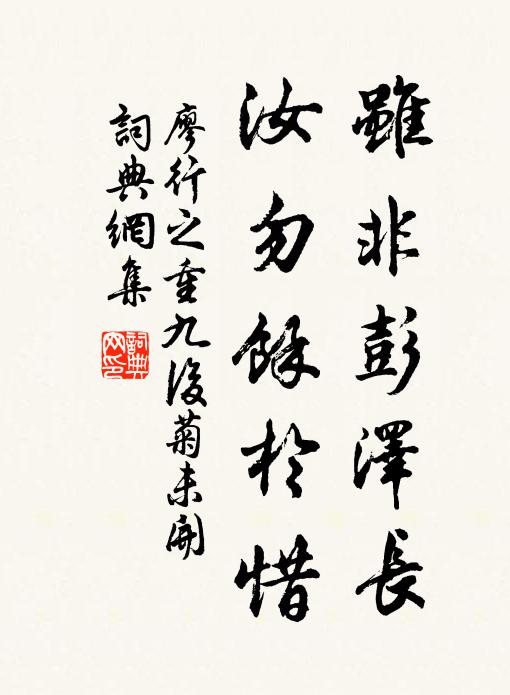 雖非彭澤長
汝勿餘於惜
廖行之重九後菊未開
詞典網集
詞典網印